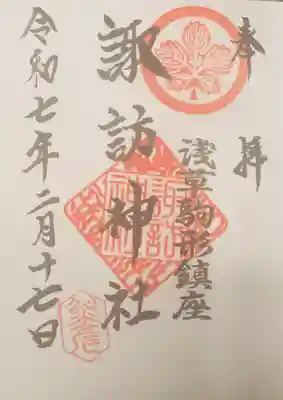 奉拝
浅草駒形鎮座
諏訪神社
令和七年二月十七日